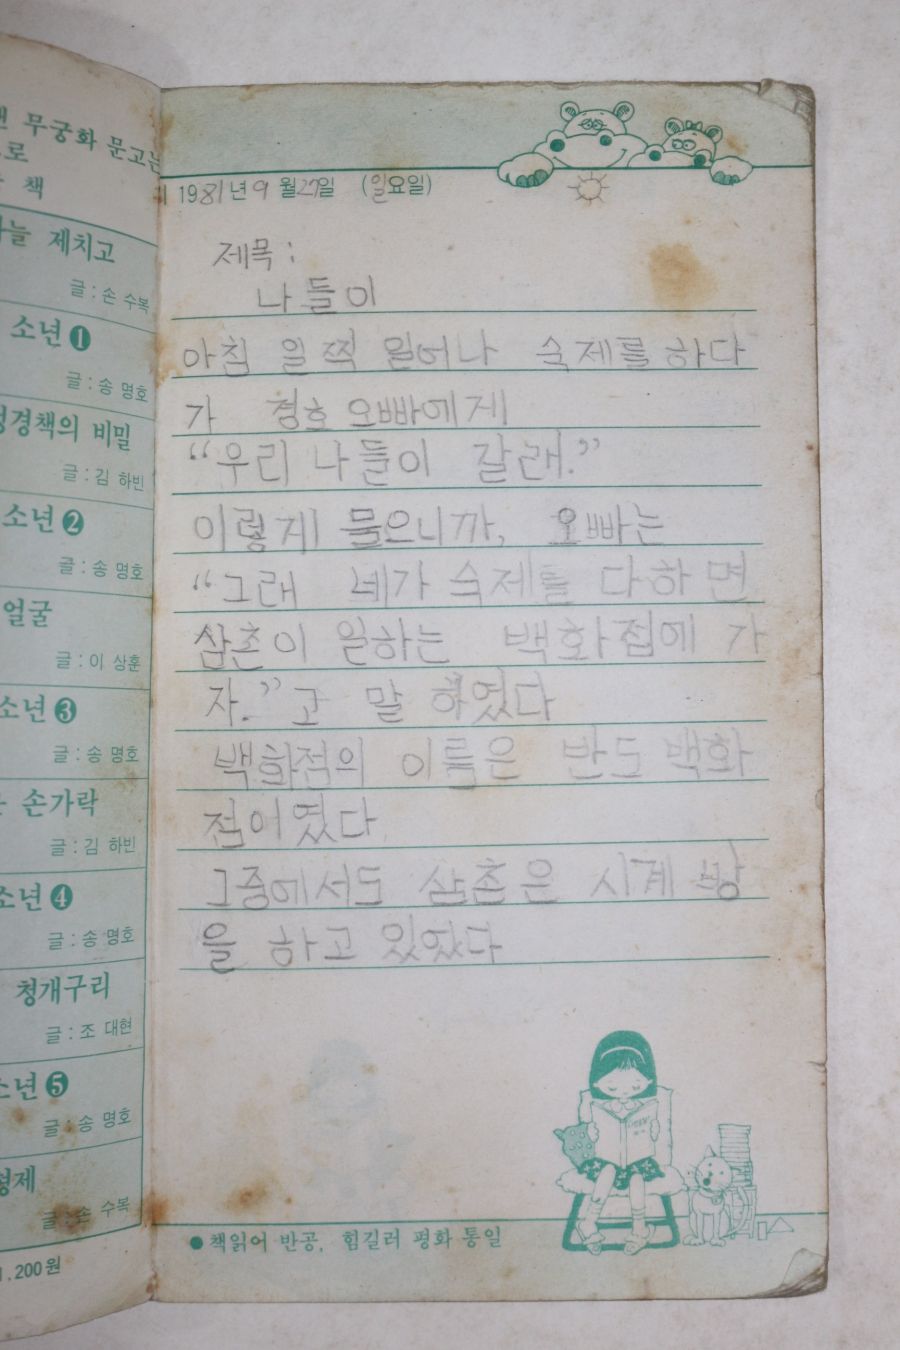 무궁화 문고는
로
책
제치고
글 : 손 수복
소년 ❶
글 : 송 명호
성경책의 비밀
글 : 김 하빈
소년 ❷
글 : 송 명호
얼굴
글 : 이 상훈
소년 ❸
글 : 송 명호
손가락
글 : 김 하빈
소년 ❹
글 : 송 명호
청개구리
글 : 조 대현
소년 ❺
글 : 송 명호
형제
글 : 손 수복
1,200원
1981년 9월 27일 (일요일)
제목 :
나들이
아침 일찍 일어나 숙제를 하다
가 경호 오빠에게
“우리 나들이 갈래.”
이렇게 물으니까, 오빠는
“그래 네가 숙제를 다하면
삼촌이 일하는 백화점에 가
자.”고 말 하였다
백화점의 이름은 반도 백화
점이였다
그중에서도 삼촌은 시계 방
을 하고 있었다
● 책읽어 반공, 힘길러 평화 통일